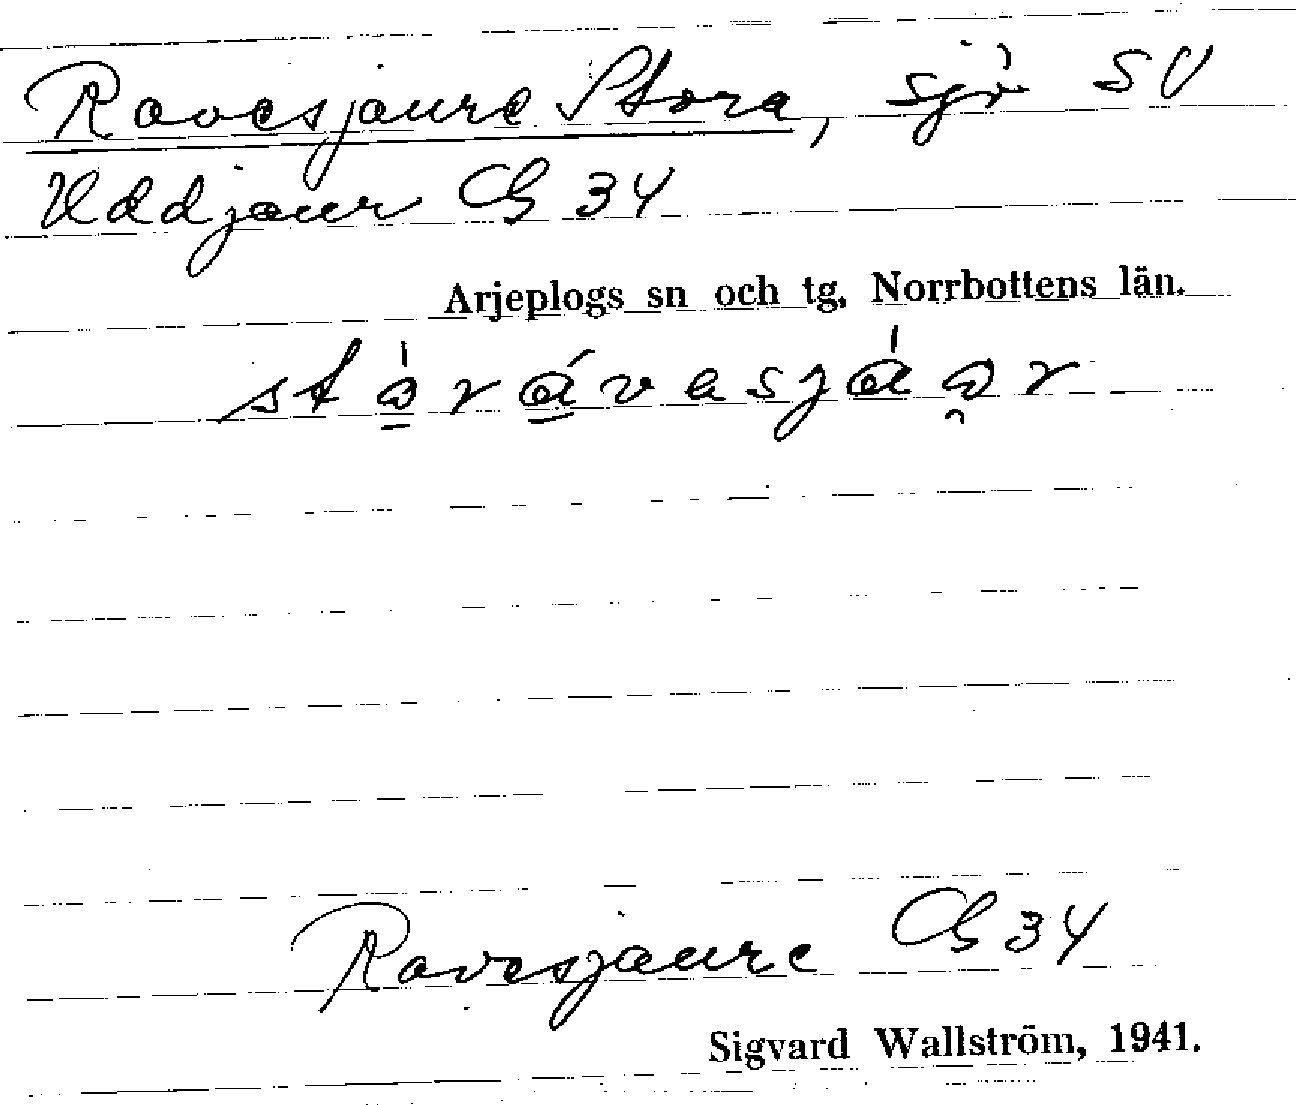 Ravesjaure Stora, sjö SV
Uddjaur GS 34
Arjeplogs sn och tg. Norrbottens län.
Ravesjaure GS 34
Sigvard Wallström, 1941.